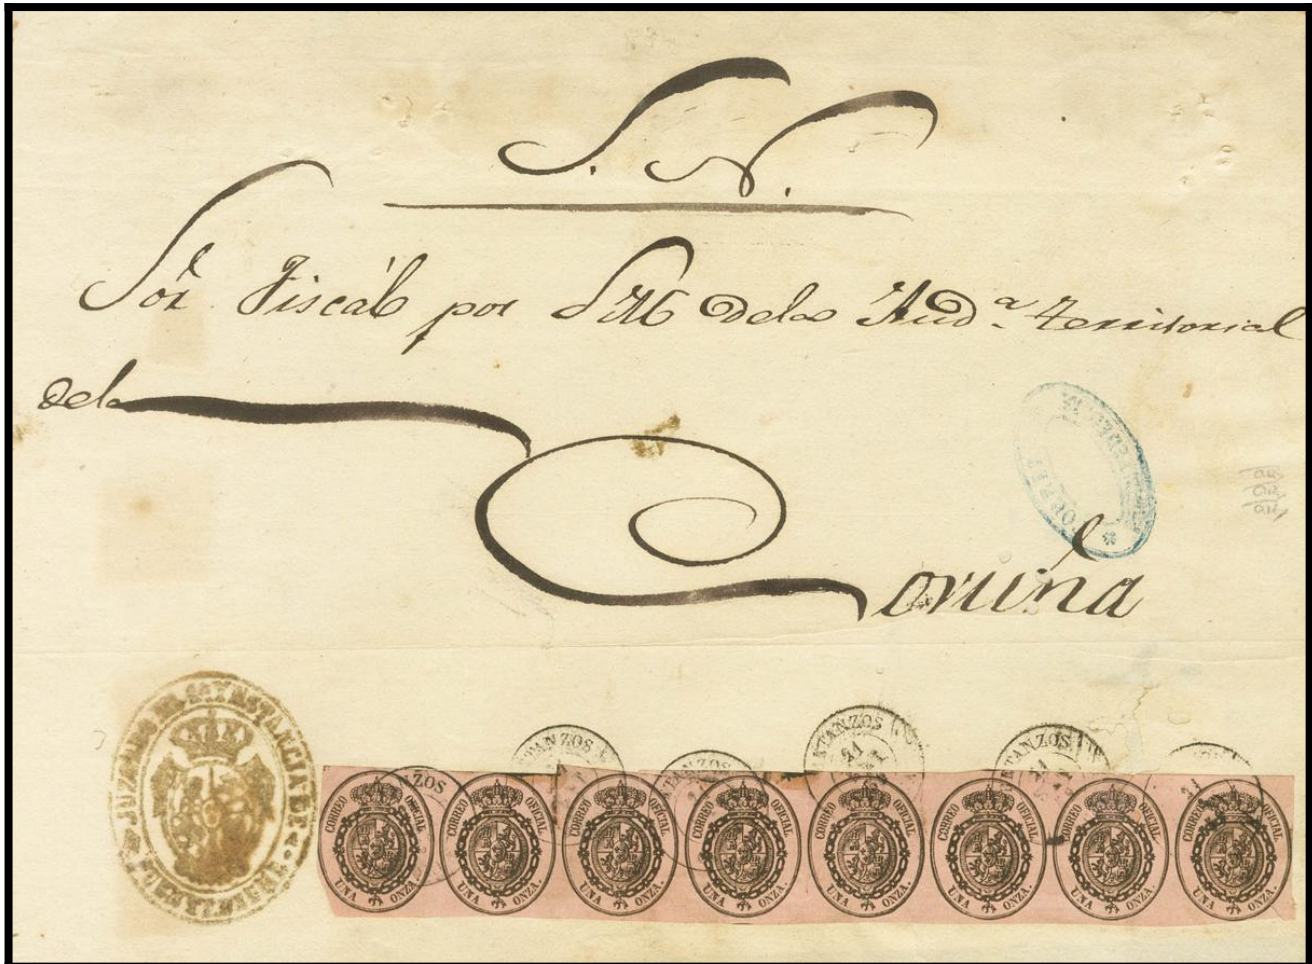 S. N.
Sor Fiscál por S M de la Aud.ª Territorial
de la
Coruña
CORREO OFICIAL UNA ONZA.
CORREO OFICIAL UNA ONZA.
CORREO OFICIAL UNA ONZA.
CORREO OFICIAL UNA ONZA.
CORREO OFICIAL UNA ONZA.
CORREO OFICIAL UNA ONZA.
CORREO OFICIAL UNA ONZA.
CORREO OFICIAL UNA ONZA.
JUZGADO DE